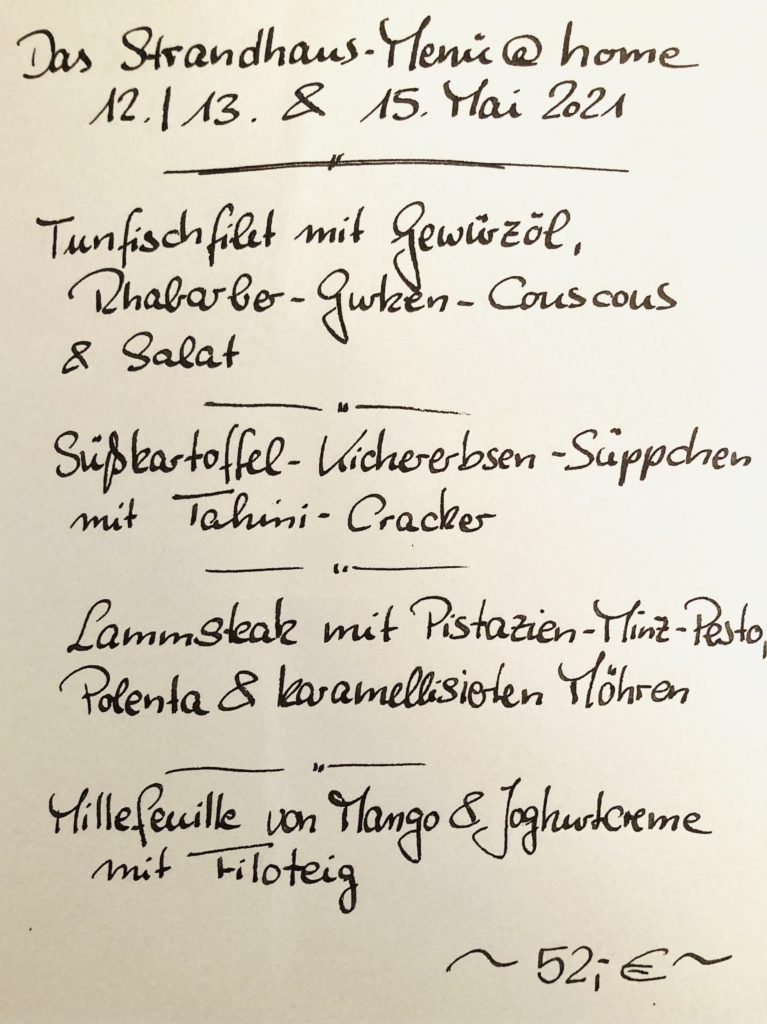 Das Strandhaus-Menü @ home
12. / 13. & 15. Mai 2021
Tunfischfilet mit Gewürzöl,
Rhabarber-Gurken-Couscous
& Salat
Süßkartoffel-Kichererbsen-Süppchen
mit Tahini-Cracker
Lammsteak mit Pistazien-Minz-Pesto,
Polenta & karamellisierten Möhren
Millefeuille von Mango & Joghurtcreme
mit Filoteig
~ 52,- € ~